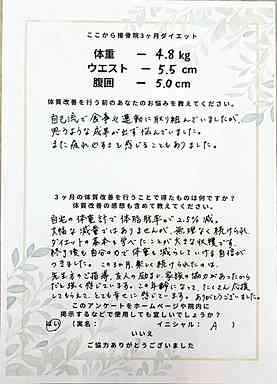 ここから接骨院3ヶ月ダイエット
体重 ー 4.8 kg
ウエスト ー 5.5 cm
腹囲 ー 5.0 cm
体質改善を行う前のあなたのお悩みを教えてください。
自己流で食事と運動に取り組んでいましたが、
思うような成果が出ず悩んでいました。
また疲れやすさを感じることもありました。
3ヶ月の体質改善を行うことで得たものは何ですか?
体質改善の感想も含めて教えてください。
自宅の体重計で体脂肪率が2.5%減。
大幅な減量ではありませんが、無理なく続けられ
ダイエットの基本を学べたことが大きな収穫です。
終了後も自分の力で体重を減らしていける自信が
つきました。この3か月、楽しく続けられたのは、
先生方のご指導、友人の励まし、家族の協力があったから
だと強く感じています。この年齢になって、たくさん応援
してもらえて、とても幸せに感じています。ありがとうございました。
このアンケートをホームページや院内に
掲示するなどで使用しても宜しいでしょうか?
はい (実名: イニシャル: A )
いいえ
ご協力ありがとうございました